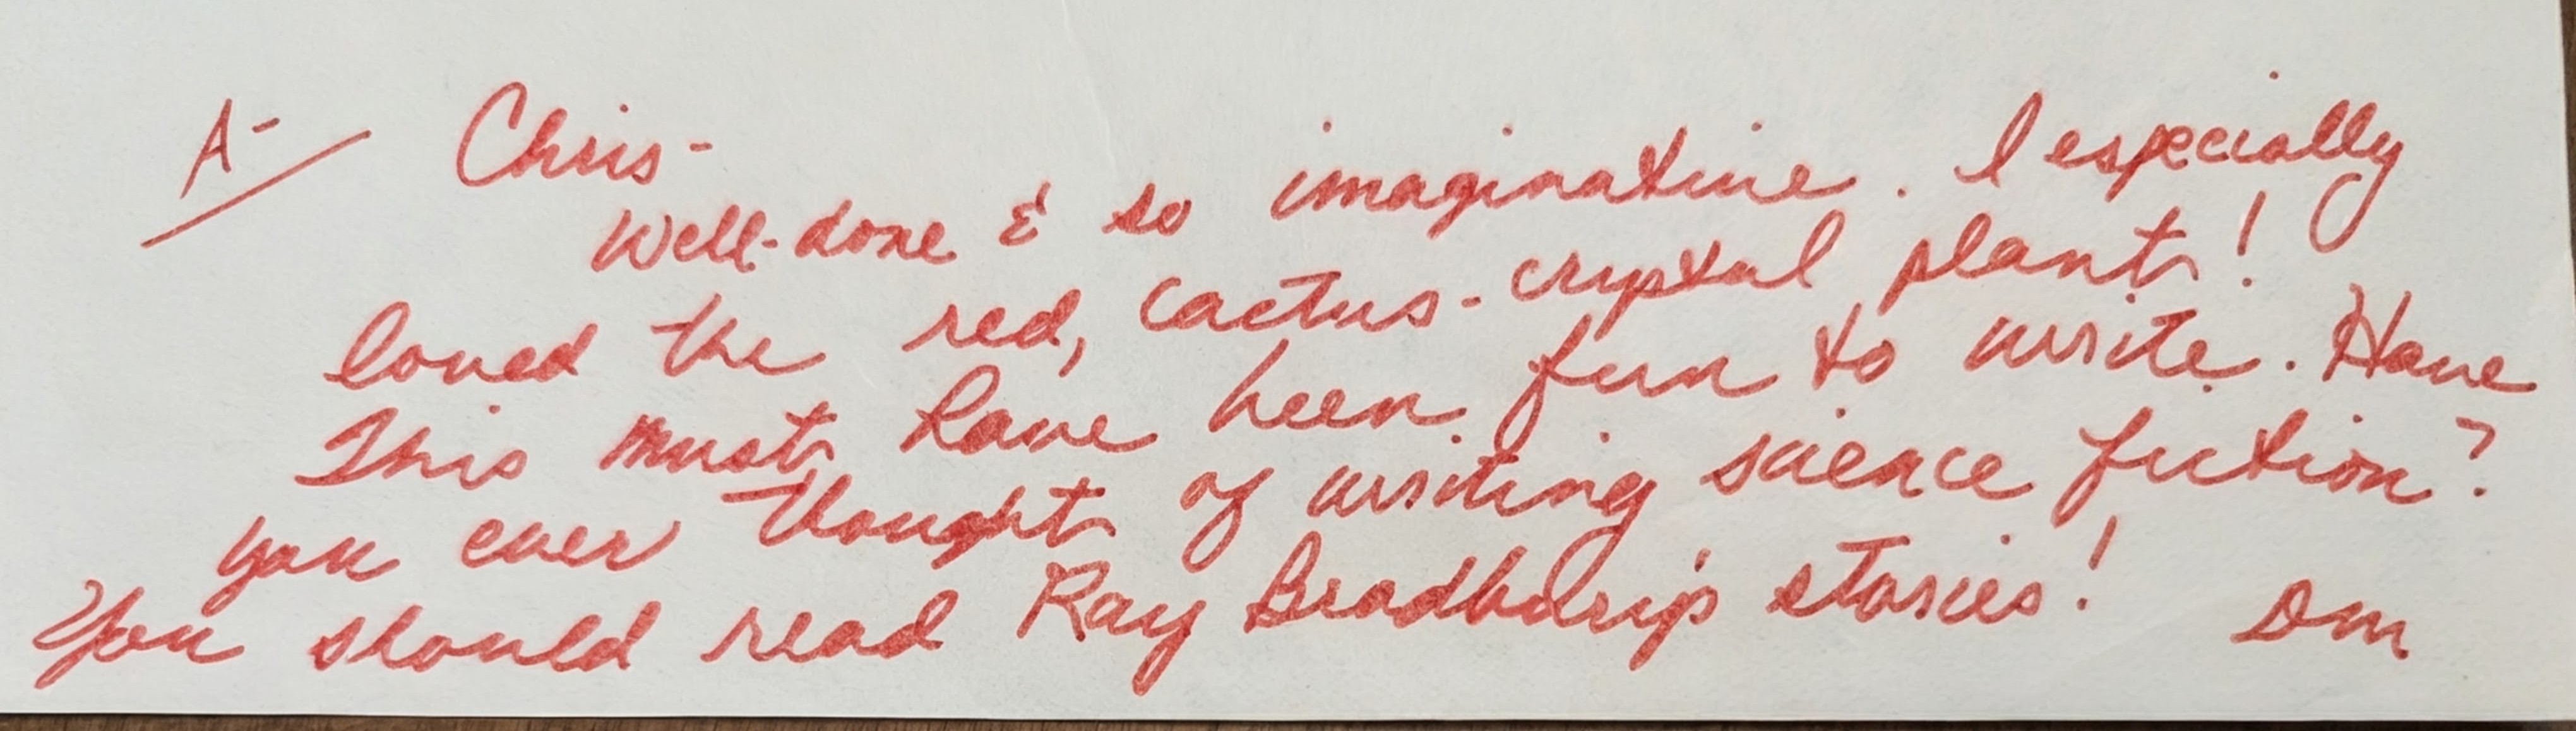 A- Chris-
Well-done & so imaginative. I especially
loved the red, cactus-crystal plant!
This must have been fun to write. Have
you ever thought of writing science fiction?
You should read Ray Bradbury's stories! DM